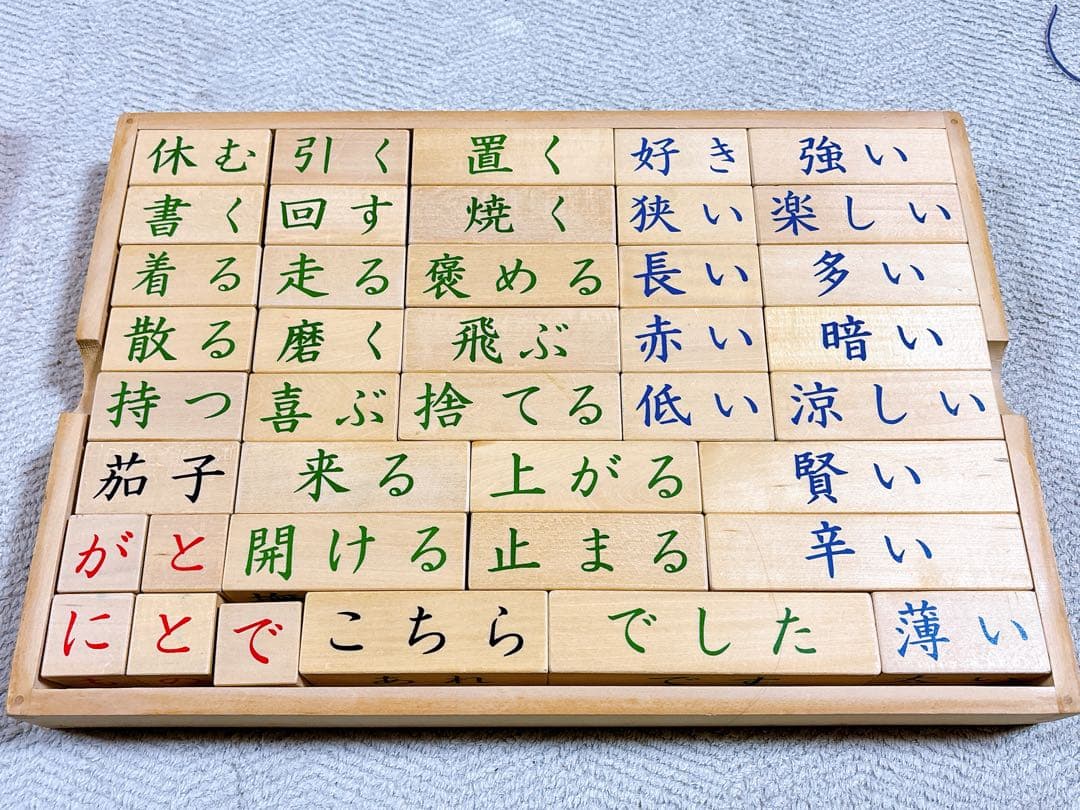 休む 引く 置く 好き 強い
書く 回す 焼く 狭い 楽しい
着る 走る 褒める 長い 多い
散る 磨く 飛ぶ 赤い 暗い
持つ 喜ぶ 捨てる 低い 涼しい
茄子 来る 上がる 賢い
が と 開ける 止まる 辛い
に と で こちら でした 薄い
あれ です